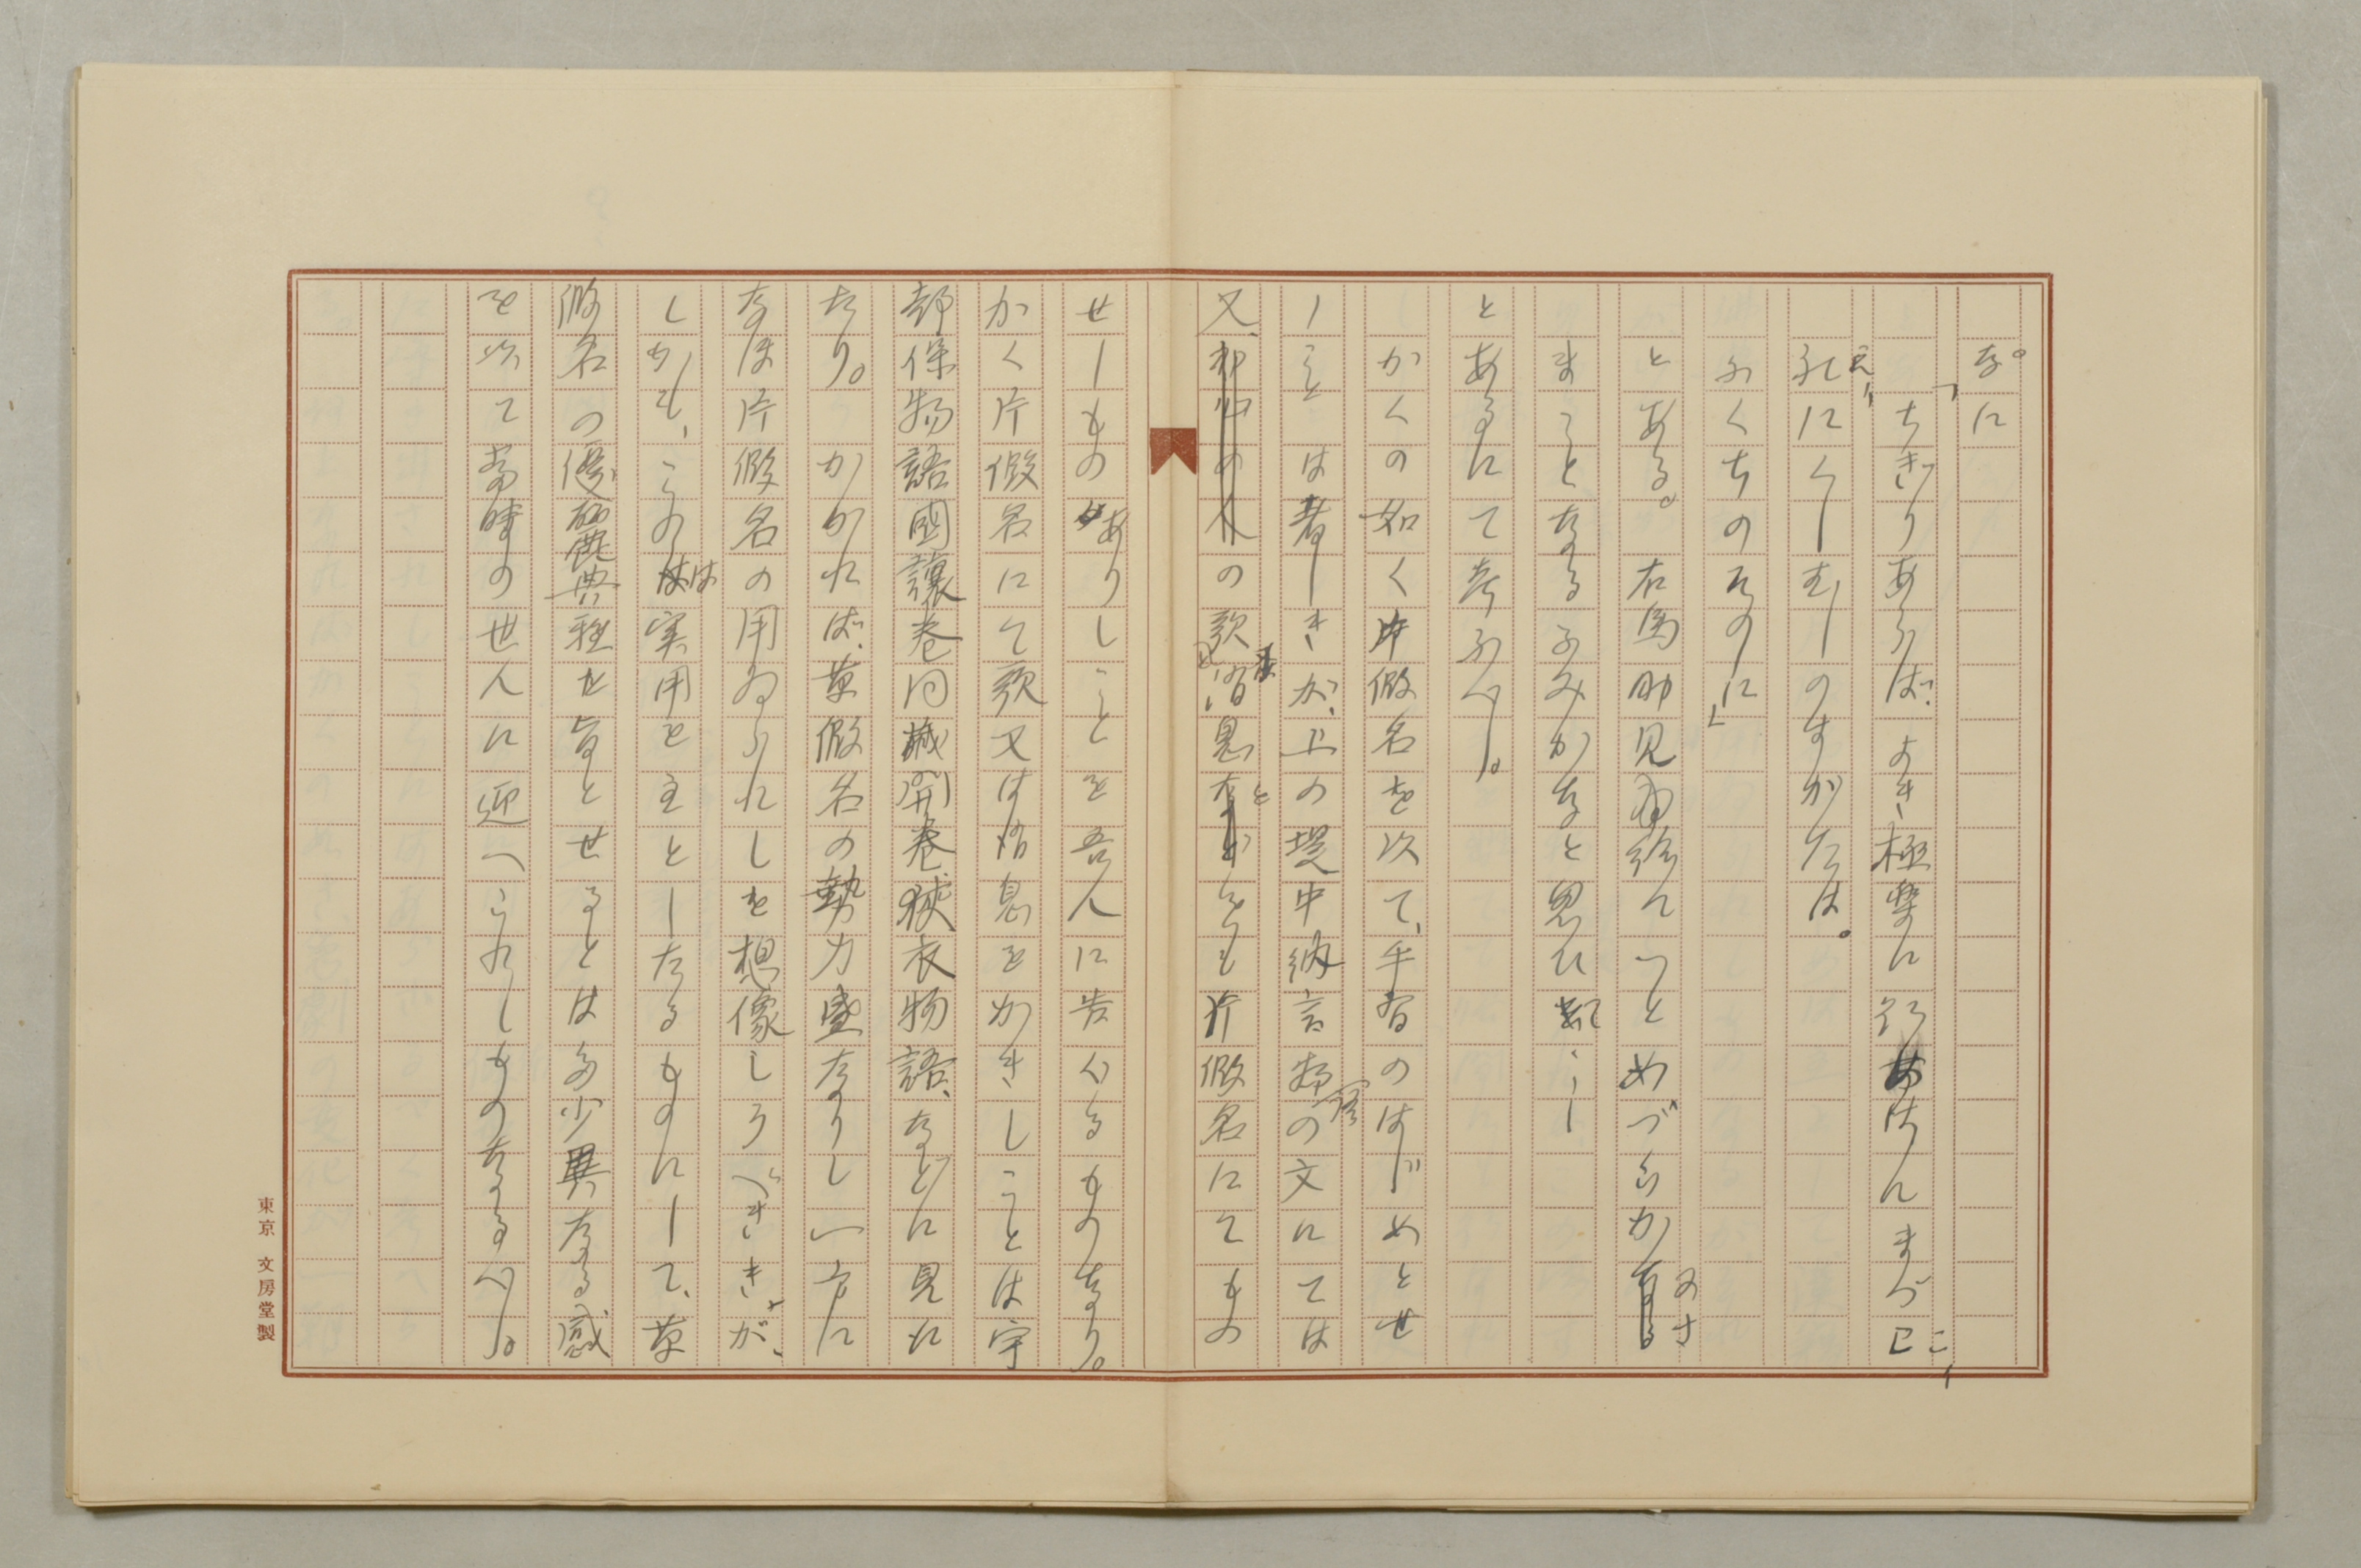 なに。
「ちぎりあらば、よき極楽に行あはんまづはこ
れにくしむしのすがたは。
ふくちのそのに」
とある。右馬助見給ひつとめづらかのさ
まことなるふみかなと思ひてこし
とあるにて考ふべし。
かくの如く片假名を以て、手習のはじめとせ
しことは著しきが、上の堤中納言物語の文にては
又、の歌消息とも片假名にてもの
せしものありしことを吾人に告ぐるものなり。
かく片假名にて歌又は消息をかきしことは宇
都保物語國讓卷同藏開卷狹衣物語、などに見え
たり。かかれば、草假名の勢力盛なりし一方に
なほ片假名の用ゐられしを想像しうべきが、
しかも、これは実用を主としたるものにして、草
假名の優麗典雅を旨とせるとは多少異なる感
を以て當時の世人に迎へられしものなるべし。
東京 文房堂製